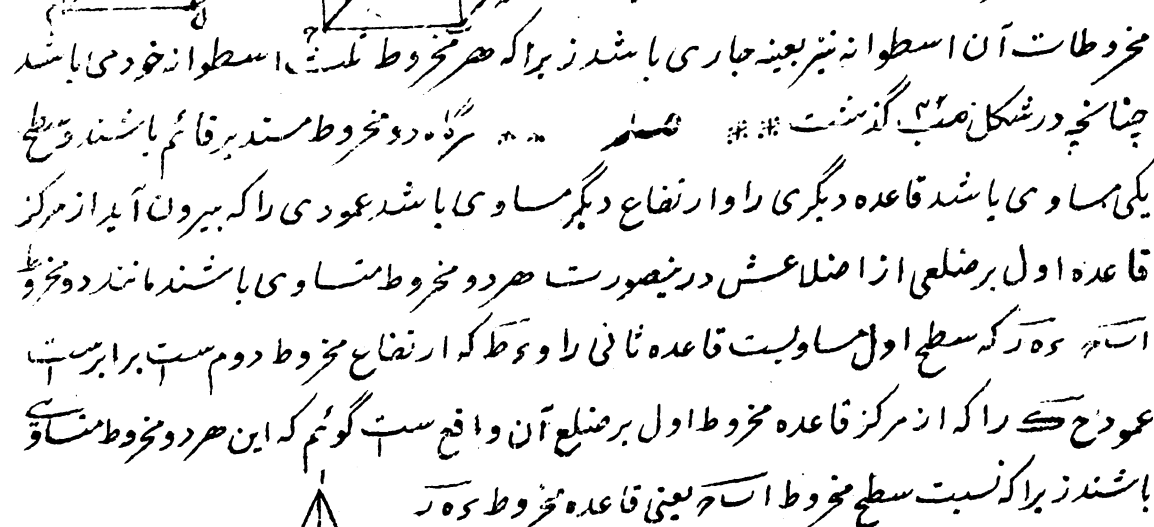 مخروطات آن اسطوانه نیز بعینه جاری باشد زیراکه هر مخروط ثلث اسطوانه خود می باشد
چنانچه در شکل گذشت ** ** هرگاه دو مخروط مستدیر قائم باشند و سطح
یکی مساوی باشد قاعده دیگری را و ارتفاع دیگر مساوی باشد عمودی را که بیرون آید از مرکز
قاعده اول بر ضلعی از اضلاعش درینصورت هر دو مخروط متساوی باشند مانند دو مخروط
اب‍ح ءه‍ر که سطح اول مساویست قاعده ثانی را و ءط که ارتفاع مخروط دوم ست برابر ست
عمود ح‍ک را که از مرکز قاعده مخروط اول بر ضلع آن واقع ست گوئم که این هر دو مخروط متساوی
باشند زیراکه نسبت سطح مخروط اب‍ح یعنی قاعده مخروط ءه‍ر